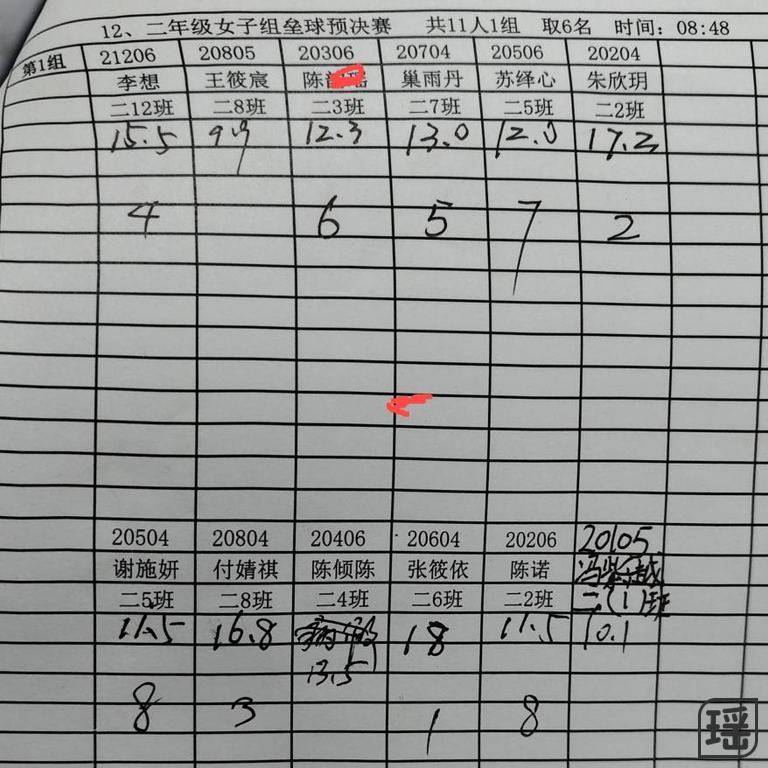 12、二年级女子组垒球预决赛 共11人1组 取6名 时间：08:48
第1组 21206 20805 20306 20704 20506 20204
李想 王筱宸 陈 瑶 巢雨丹 苏绎心 朱欣玥
二12班 二8班 二3班 二7班 二5班 二2班
15.5 9.9 12.3 13.0 12.0 17.2
4 6 5 7 2
20504 20804 20406 20604 20206 20105
谢施妍 付婧祺 陈倾陈 张筱依 陈诺 冯紫越
二5班 二8班 二4班 二6班 二2班 二(1)班
11.5 16.8 18 11.5 10.1
13.5
8 3 1 8
瑶